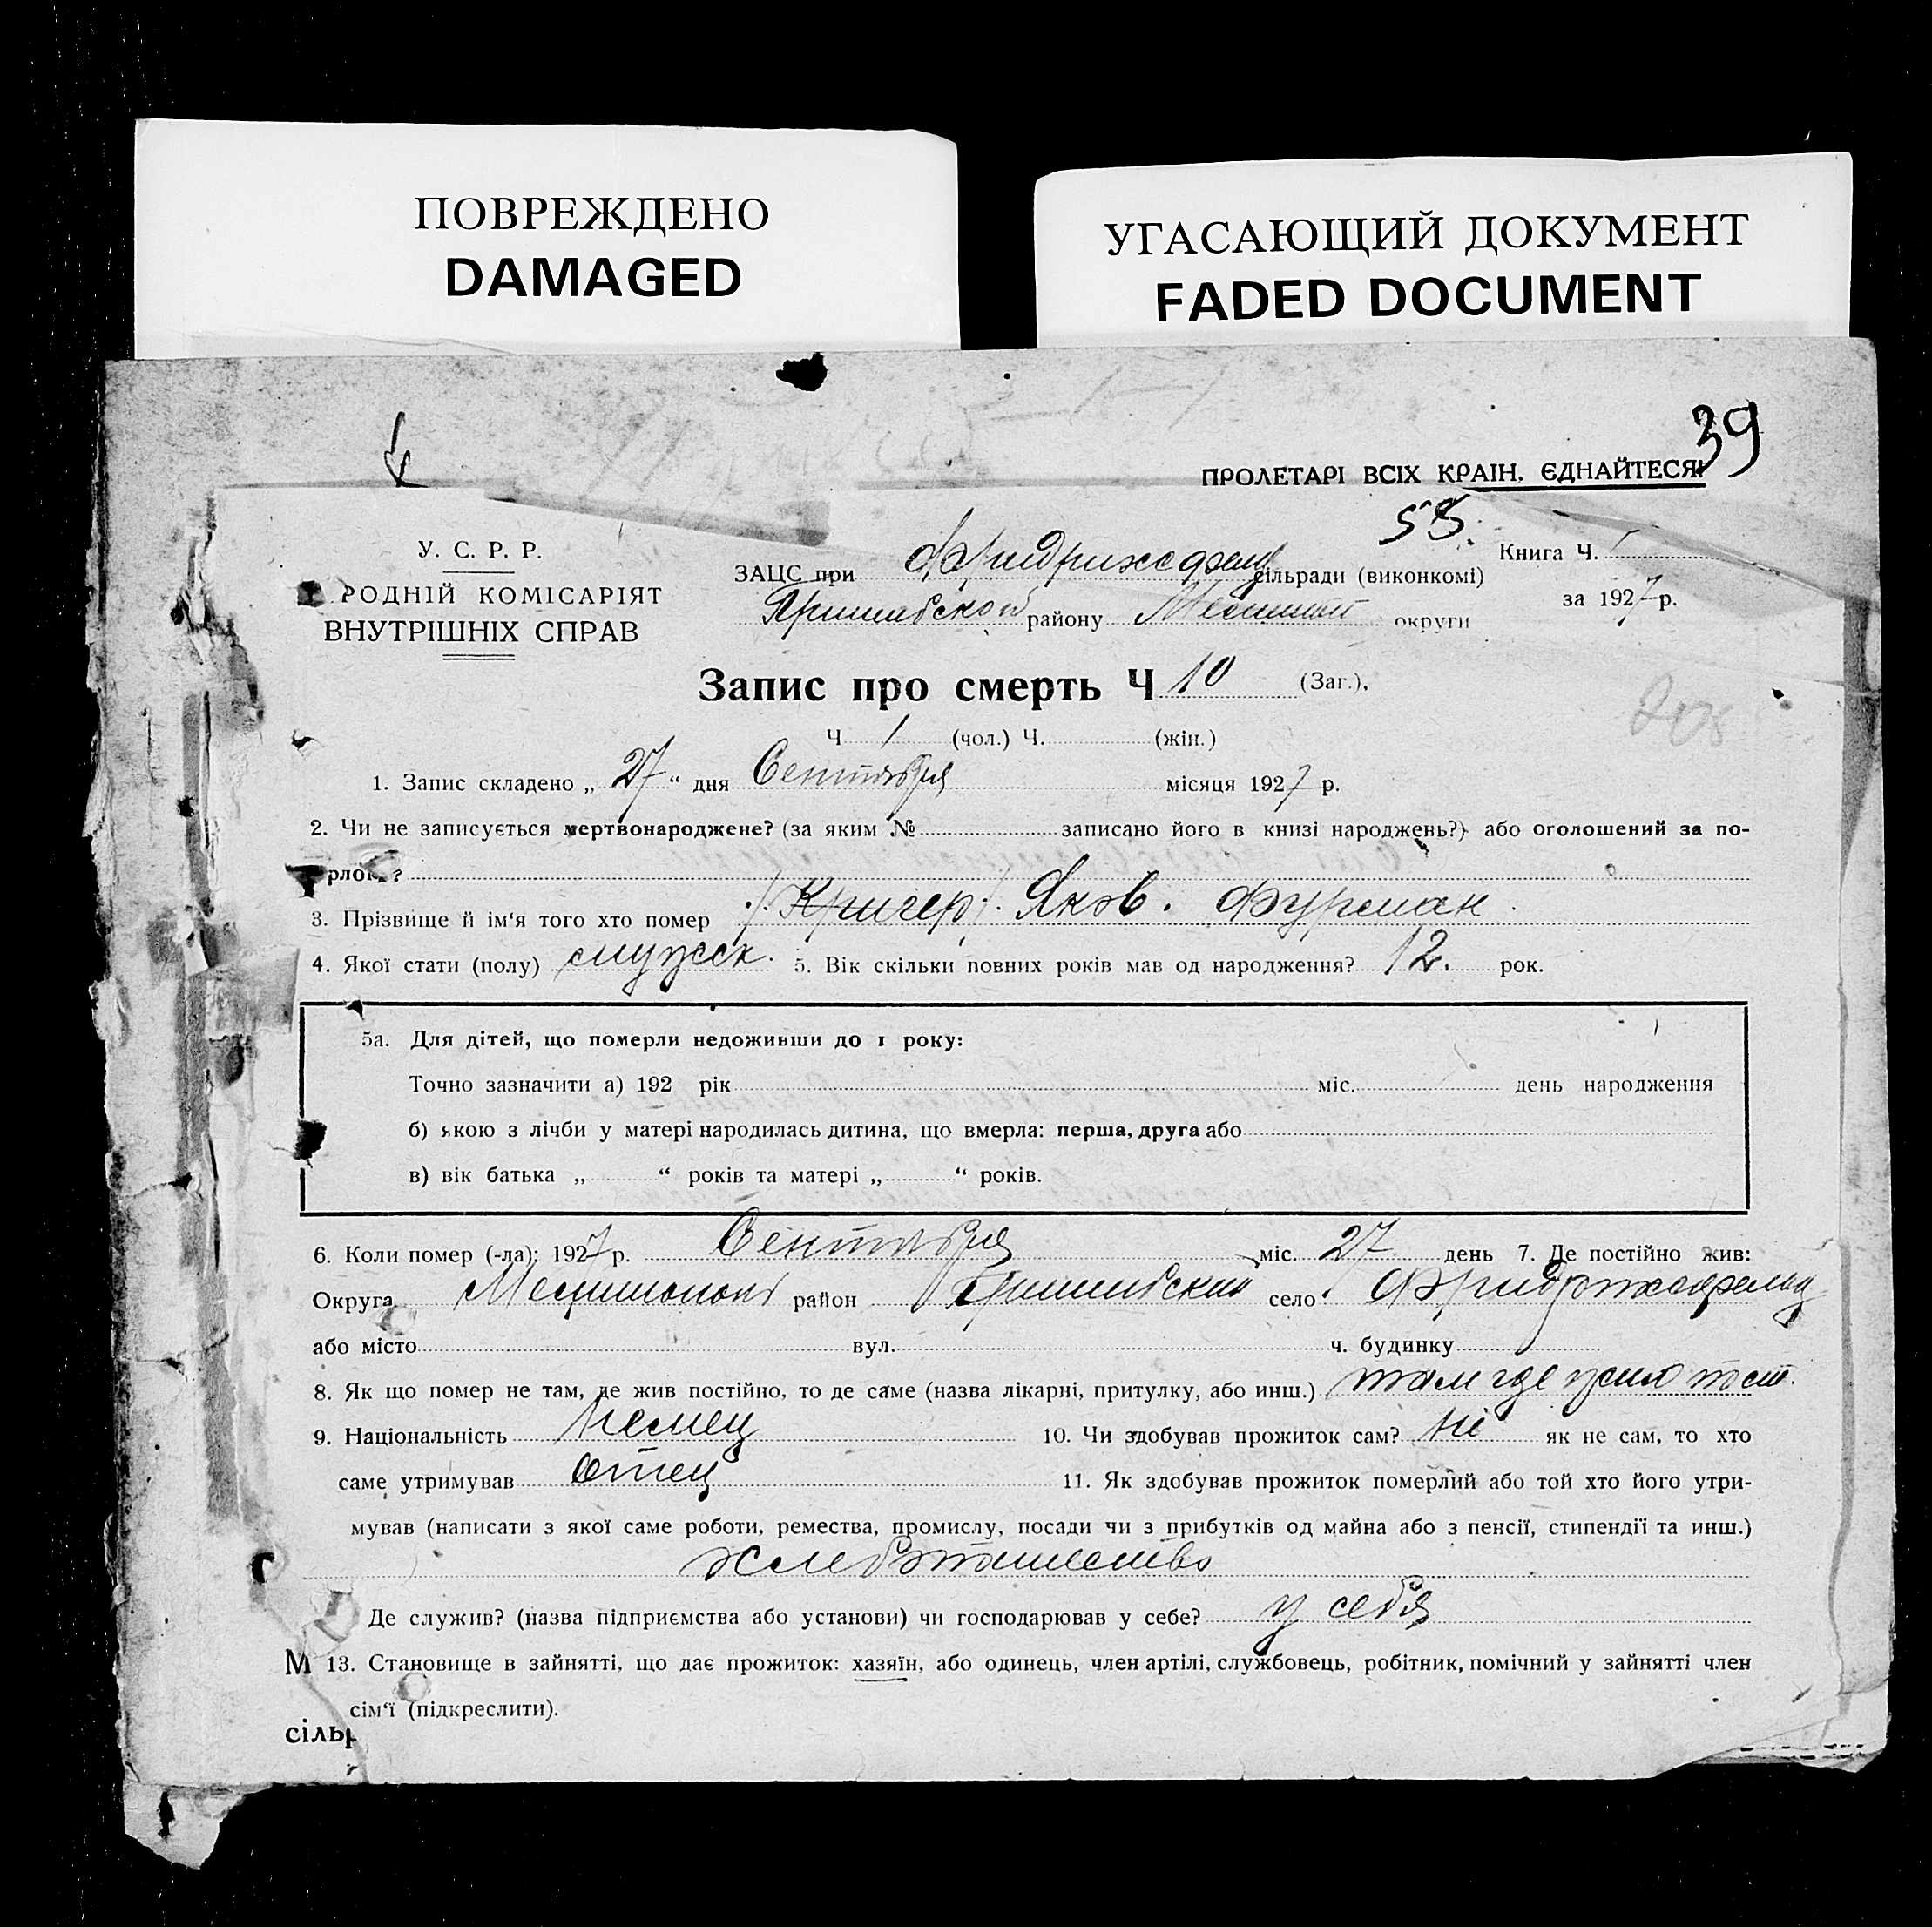 ПОВРЕЖДЕНО
DAMAGED
УГАСАЮЩИЙ ДОКУМЕНТ
FADED DOCUMENT
39
ПРОЛЕТАРІ ВСІХ КРАІН, ЄДНАЙТЕСЯ!
53.
У. С. Р. Р.
РОДНІЙ КОМІСАРІЯТ
ВНУТРІШНІХ СПРАВ
ЗАЦС при Фридрихсфельд сільради (виконкомі)
Пришибской району округи
Книга Ч.
за 1927 р.
Запис про смерть Ч 10 (Заг.).
208
Ч 1 (чол.) Ч. (жін.)
1. Запис складено „ 27 “ дня Сентября місяця 1927 р.
2. Чи не записується мертвонароджене? (за яким № записано його в книзі народжень?) або оголошений за по-
3. Прізвище й ім‘я того хто помер /Кригер/. Яков. Фурман.
4. Якої стати (полу) мужск. 5. Вік скільки повних років мав од народження? 12. рок.
5а. Для дітей, що померли недоживши до 1 року:
Точно зазначити а) 192 рік міс. день народження
б) якою з лічби у матері народилась дитина, що вмерла: перша, друга або
в) вік батька „ “ років та матері „ “ років.
6. Коли помер (-ла): 1927 р. Сентября міс. 27 день 7. Де постійно жив:
Округа Мелитополь район Пришибский село Фридрихсфельд
або місто вул. ч. будинку
8. Як що помер не там, де жив постійно, то де саме (назва лікарні, притулку, або инш.) там где жил пост.
9. Національність немец 10. Чи здобував прожиток сам? ні як не сам, то хто
саме утримував отец 11. Як здобував прожиток померлий або той хто його утри-
мував (написати з якої саме роботи, ремества, промислу, посади чи з прибутків од майна або з пенсії, стипендії та инш.)
хлебопашество
Де служив? (назва підприємства або установи) чи господарював у себе? у себя
М 13. Становище в зайнятті, що дає прожиток: хазяїн, або одинець, член артілі, службовець, робітник, помічний у зайнятті член
сім‘ї (підкреслити).
сіль